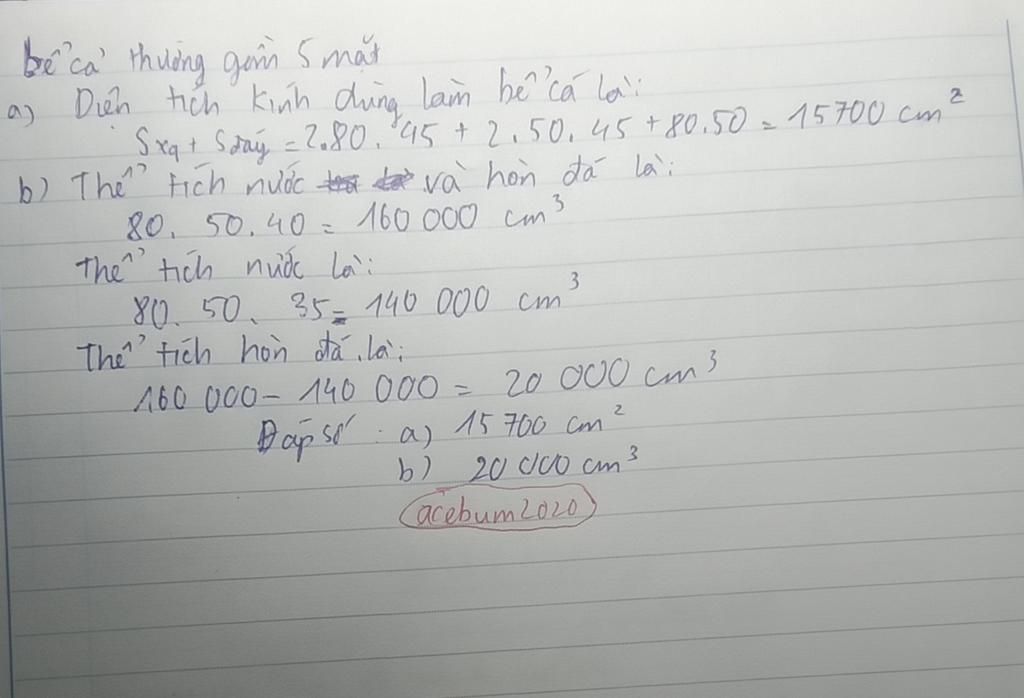 bể cá thường gồm 5 mặt
a) Diện tích kính dùng làm bể cá là:
Sxq + Sđáy = 2.80.45 + 2.50.45 + 80.50 = 15700 cm²
b) Thể tích nước và hòn đá là:
80.50.40 = 160 000 cm³
Thể tích nước là:
80.50.35 = 140 000 cm³
Thể tích hòn đá là:
160 000 - 140 000 = 20 000 cm³
Đáp số: a) 15 700 cm²
b) 20 000 cm³
acebum2020